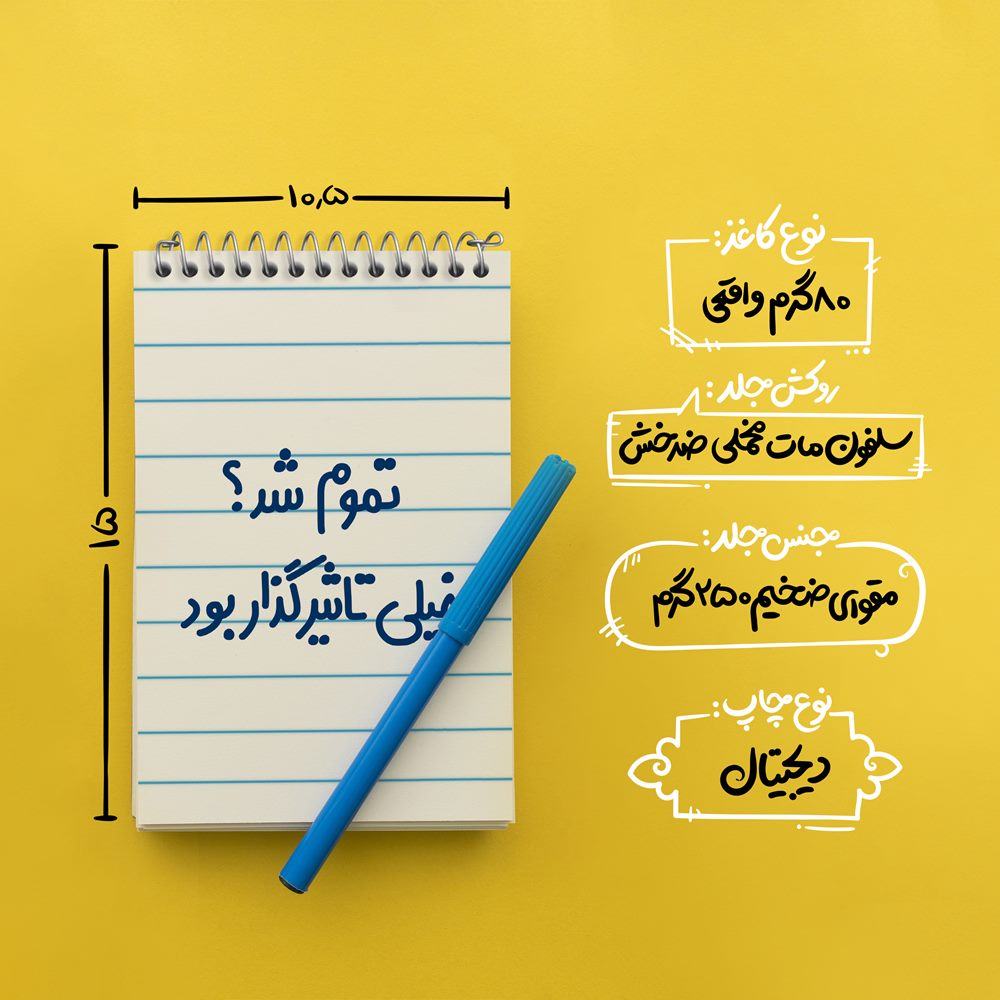 ۱۰,۵
۱۵
تموم شد؟
خیلی تاثیرگذار بود
نوع کاغذ:
۸۰گرم واقعی
روکش جلد:
سلفون مات مخملی ضدخش
جنس جلد:
مقوای ضخیم ۲۵۰گرم
نوع چاپ:
دیجیتال